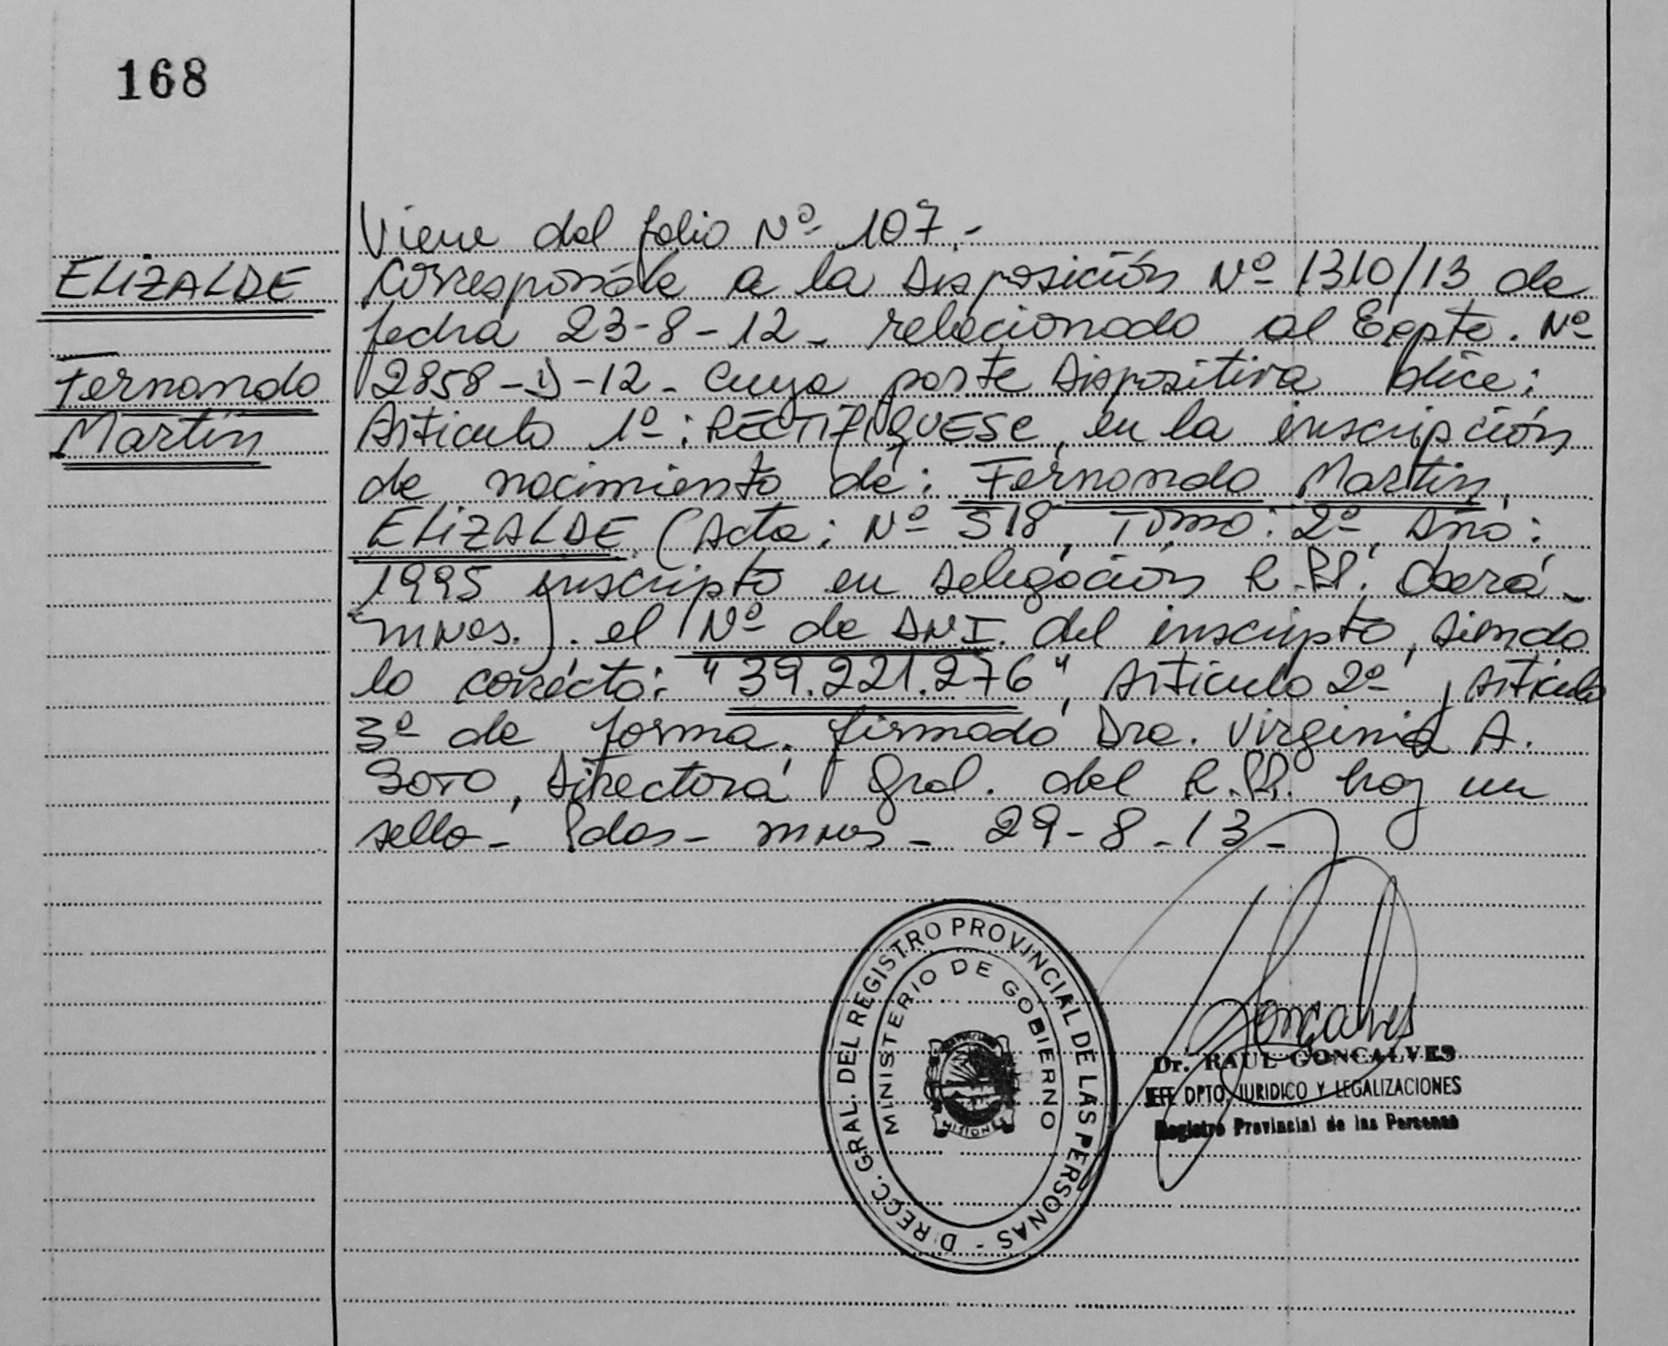 168
Viene del folio Nº 107.-
ELIZALDE
Fernando
Martín
Corresponde a la Disposición Nº 1310/13 de
fecha 23-8-12- relacionado al Expte. Nº
2858-D-12- cuya parte Dispositiva dice:
Artículo 1º: RECTIFIQUESE, en la inscripción
de nacimiento de: Fernando Martín
ELIZALDE (Acta: Nº 518, Tomo: 2º, Año:
1995 inscripto en Delegación R.P.P. Oberá-
mnes.). el Nº de DNI. del inscripto, siendo
lo correcto: "39.221.276", Artículo 2º, Artículo
3º de forma. firmado Dra. Virginia A.
Soto, Directora Gral. del R.P.P. hay un
sello- Pdas- mnes- 29-8-13-
DIRECC. GRAL. DEL REGISTRO PROVINCIAL DE LAS PERSONAS -
MINISTERIO DE GOBIERNO
MISIONES
Goncalves
Dr. RAUL GONCALVES
JEFE DPTO. JURIDICO Y LEGALIZACIONES
Registro Provincial de las Personas